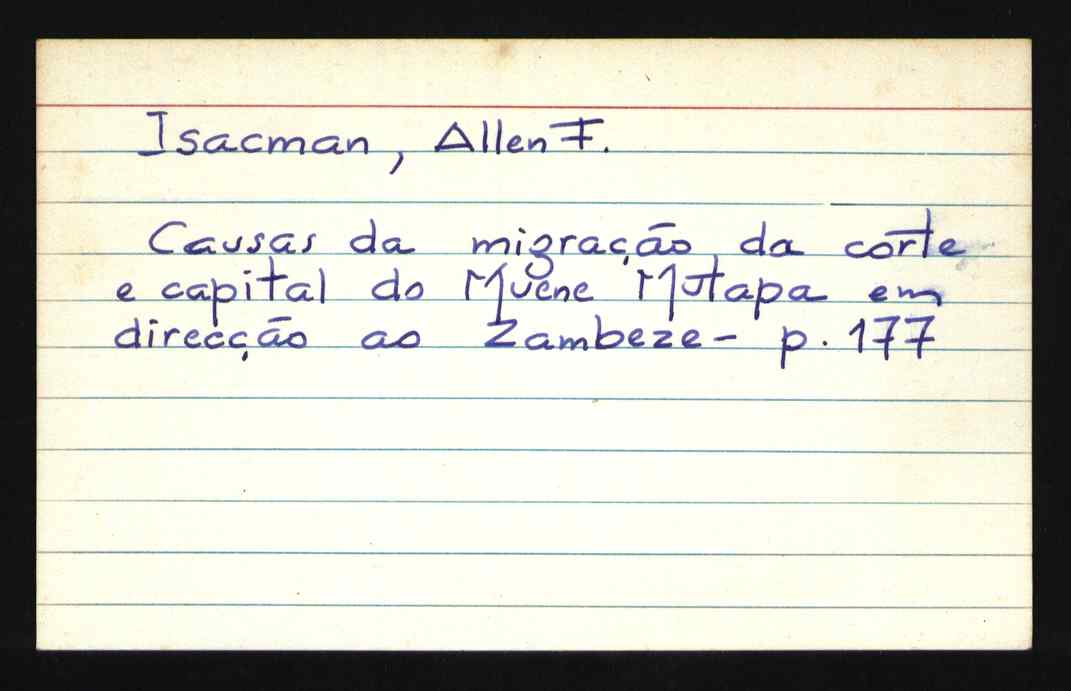 Isacman, Allen F.
Causas da migração da corte
e capital do Muene Mutapa em
direcção ao Zambeze - p. 177